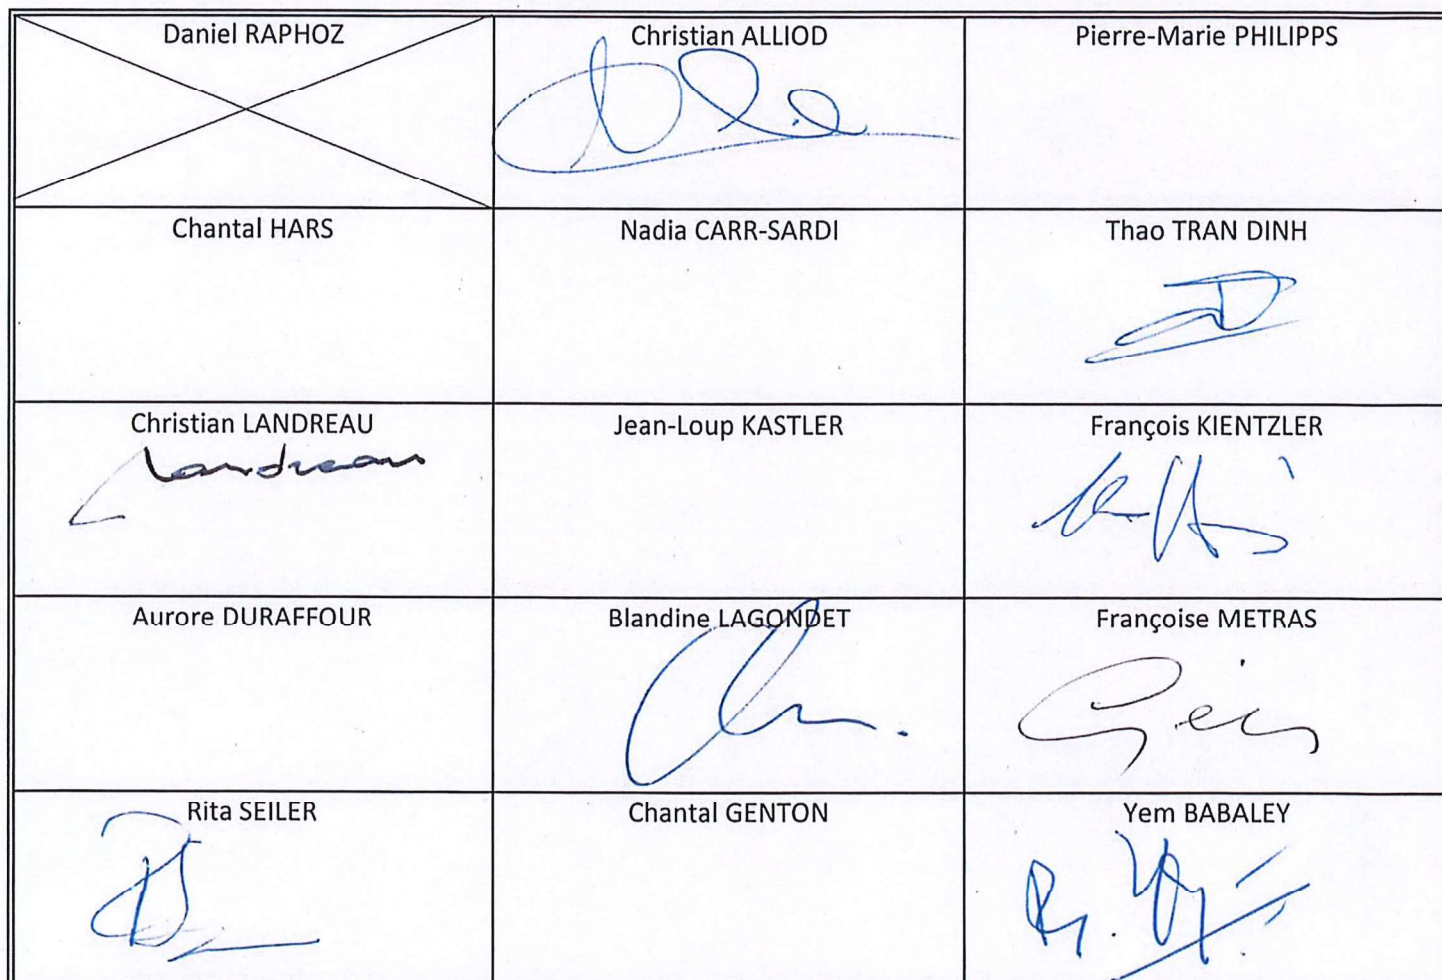 Daniel RAPHOZ
Christian ALLIOD
Pierre-Marie PHILIPPS
Chantal HARS
Nadia CARR-SARDI
Thao TRAN DINH
Christian LANDREAU
Landreau
Jean-Loup KASTLER
François KIENTZLER
Aurore DURAFFOUR
Blandine LAGONDET
Françoise METRAS
Rita SEILER
Chantal GENTON
Yem BABALEY